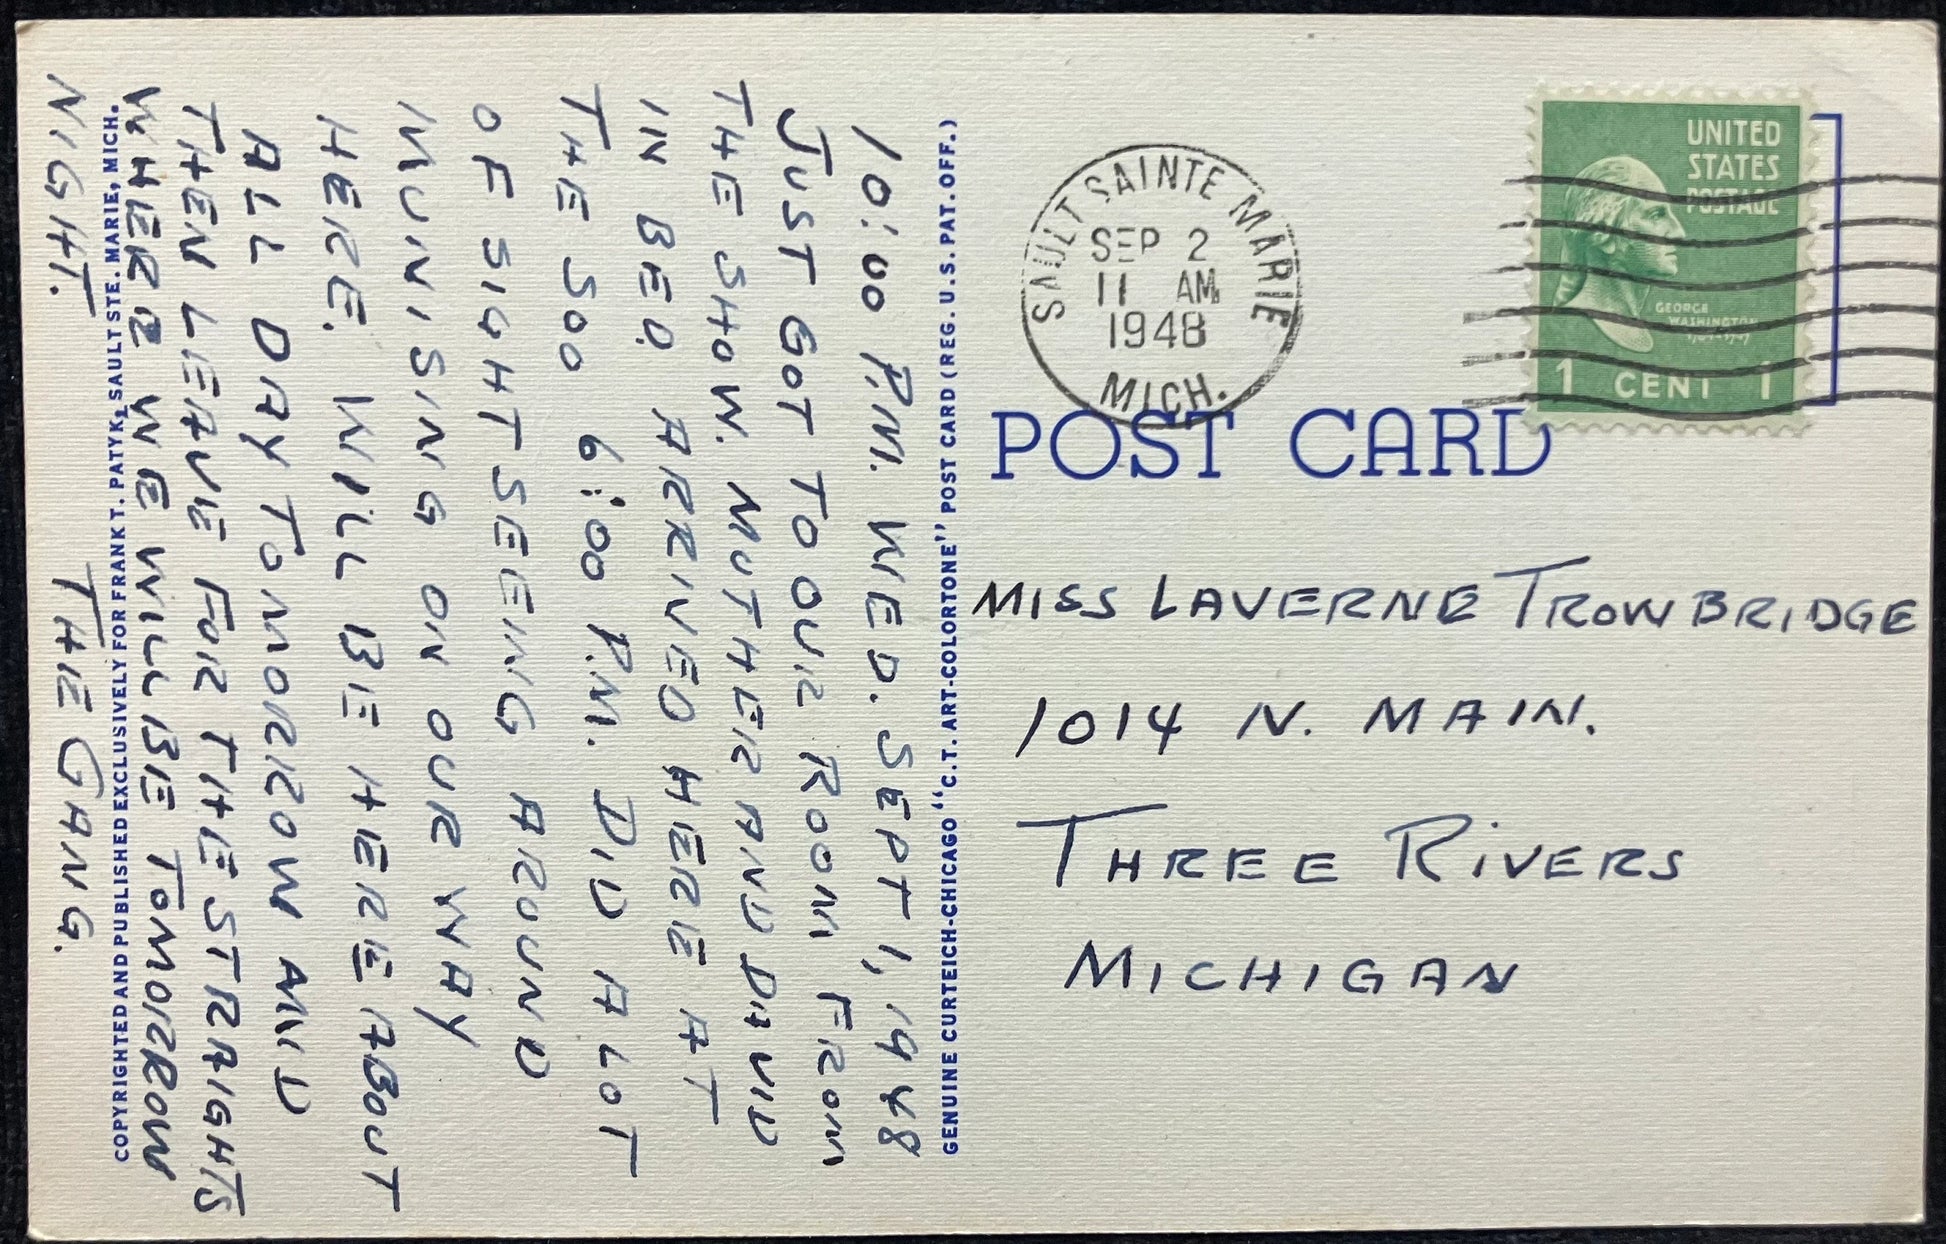 10:00 P.M. WED. SEPT 1, 1948
JUST GOT TO OUR ROOM FROM
THE SHOW. MOTHER AND DAVID
IN BED. ARRIVED HERE AT
THE SOO 6:00 P.M. DID A LOT
OF SIGHTSEEING AROUND
MUNISING ON OUR WAY
HERE. WILL BE HERE ABOUT
ALL DAY TOMORROW AND
THEN LEAVE FOR THE STRAIGHTS
WHERE WE WILL BE TOMORROW
NIGHT.
THE GANG.
COPYRIGHTED AND PUBLISHED EXCLUSIVELY FOR FRANK T. PATYK, SAULT STE. MARIE, MICH.
GENUINE CURTEICH-CHICAGO "C.T. ART-COLORTONE" POST CARD (REG. U.S. PAT. OFF.)
SAULT SAINTE MARIE
SEP 2
11 AM
1948
MICH.
UNITED
STATES
POSTAGE
GEORGE
WASHINGTON
1 CENT 1
POST CARD
MISS LAVERNE TROWBRIDGE
1014 N. MAIN.
THREE RIVERS
MICHIGAN